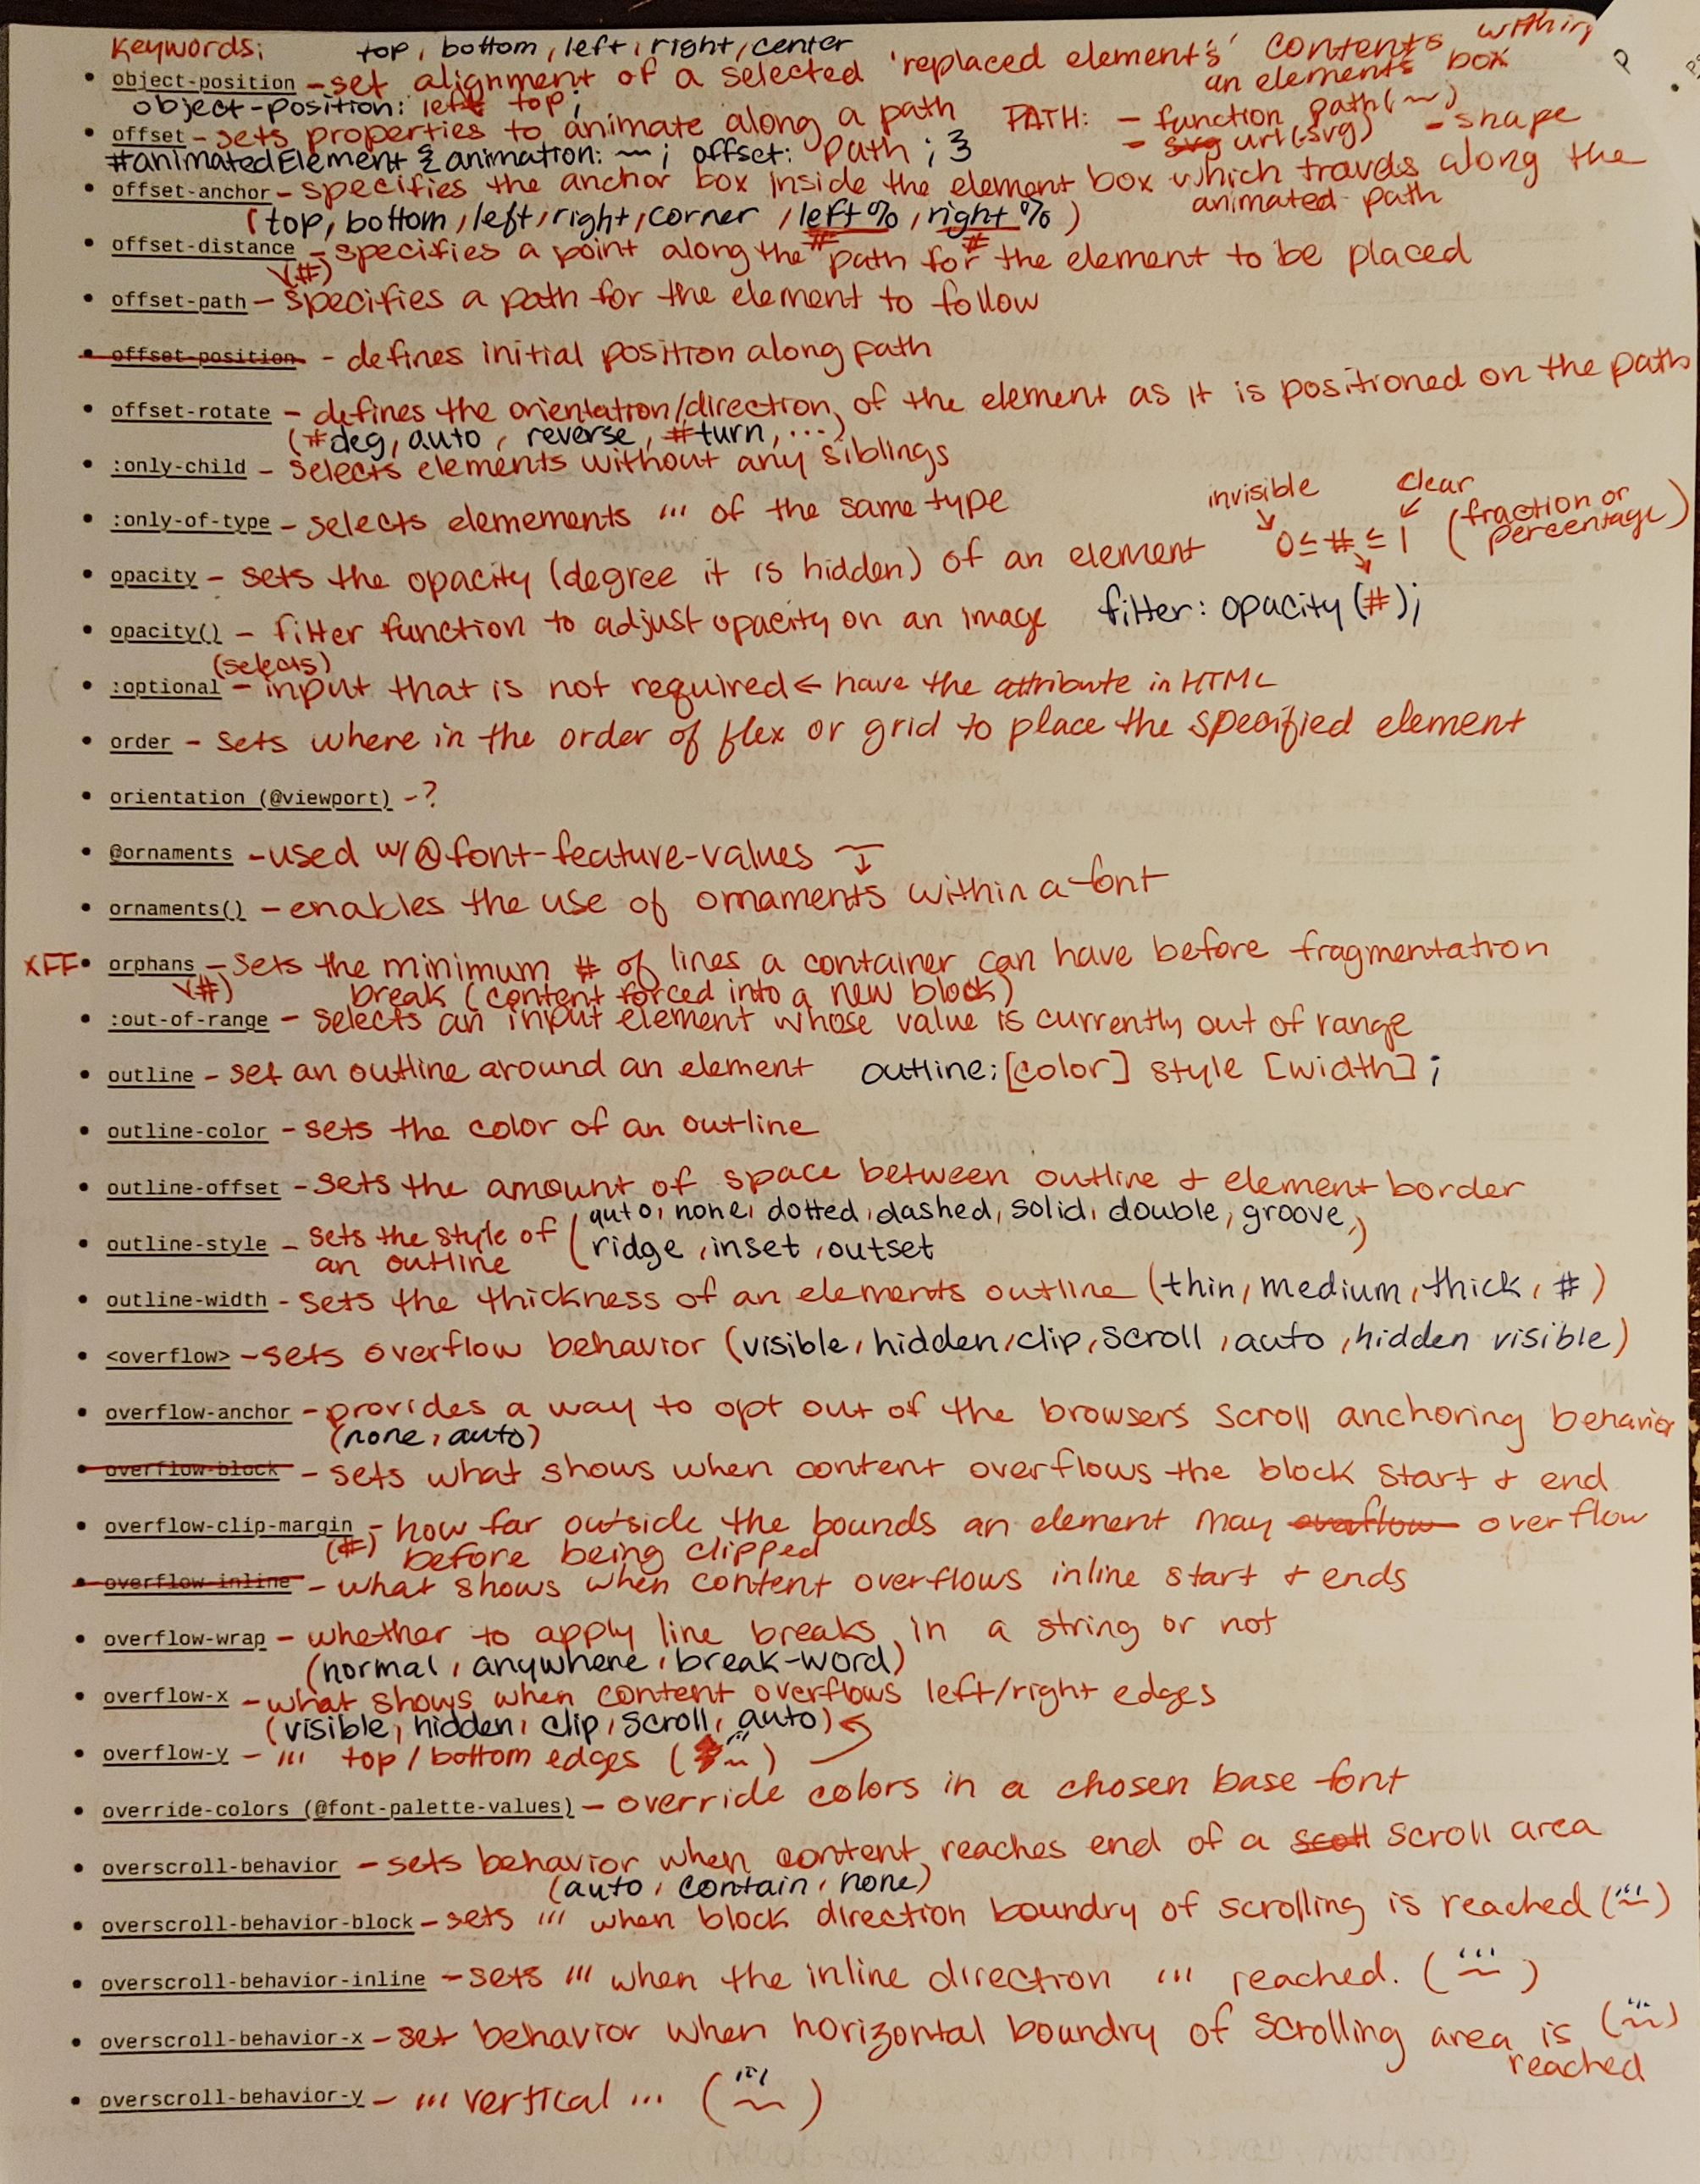 Keywords: top, bottom, left, right, center
• object-position - set alignment of a selected 'replaced element's' contents within
an elements box
object-position: left top;
• offset - sets properties to animate along a path PATH: - function path(~) - shape
#animatedElement { animation: ~ ; offset: path ; } - svg url(.svg)
• offset-anchor - specifies the anchor box inside the element box which travels along the
animated path
(top, bottom, left, right, corner, left %, right %)
# #
• offset-distance - specifies a point along the path for the element to be placed
(#)
• offset-path - specifies a path for the element to follow
• offset-position - defines initial position along path
• offset-rotate - defines the orientation/direction of the element as it is positioned on the path
(#deg, auto, reverse, #turn, ...)
• :only-child - selects elements without any siblings
• :only-of-type - selects elemements ''' of the same type
invisible clear
0 ≤ # ≤ 1 (fraction or percentage)
• opacity - sets the opacity (degree it is hidden) of an element
• opacity() - filter function to adjust opacity on an image filter: opacity(#);
(selects)
• :optional - input that is not required ← have the attribute in HTML
• order - sets where in the order of flex or grid to place the specified element
• orientation (@viewport) - ?
• @ornaments - used w/ @font-feature-values
• ornaments() - enables the use of ornaments within a font
XFF • orphans - sets the minimum # of lines a container can have before fragmentation
(#) break (content forced into a new block)
• :out-of-range - selects an input element whose value is currently out of range
• outline - set an outline around an element outline: [color] style [width];
• outline-color - sets the color of an outline
• outline-offset - sets the amount of space between outline & element border
• outline-style - sets the style of an outline (auto, none, dotted, dashed, solid, double, groove,
ridge, inset, outset)
• outline-width - sets the thickness of an elements outline (thin, medium, thick, #)
• <overflow> - sets overflow behavior (visible, hidden, clip, scroll, auto, hidden visible)
• overflow-anchor - provides a way to opt out of the browsers scroll anchoring behavior
(none, auto)
• overflow-block - sets what shows when content overflows the block start & end
• overflow-clip-margin - how far outside the bounds an element may overflow overflow
(#) before being clipped
• overflow-inline - what shows when content overflows inline start & ends
• overflow-wrap - whether to apply line breaks in a string or not
(normal, anywhere, break-word)
• overflow-x - what shows when content overflows left/right edges
(visible, hidden, clip, scroll, auto)
• overflow-y - ''' top/bottom edges ( ''' ~ )
• override-colors (@font-palette-values) - override colors in a chosen base font
• overscroll-behavior - sets behavior when content reaches end of a scoll scroll area
(auto, contain, none)
• overscroll-behavior-block - sets ''' when block direction boundry of scrolling is reached ( ''' ~ )
• overscroll-behavior-inline - sets ''' when the inline direction ''' reached. ( ''' ~ )
• overscroll-behavior-x - set behavior when horizontal boundry of scrolling area is reached ( ''' ~ )
• overscroll-behavior-y - ''' vertical ... ( ''' ~ )